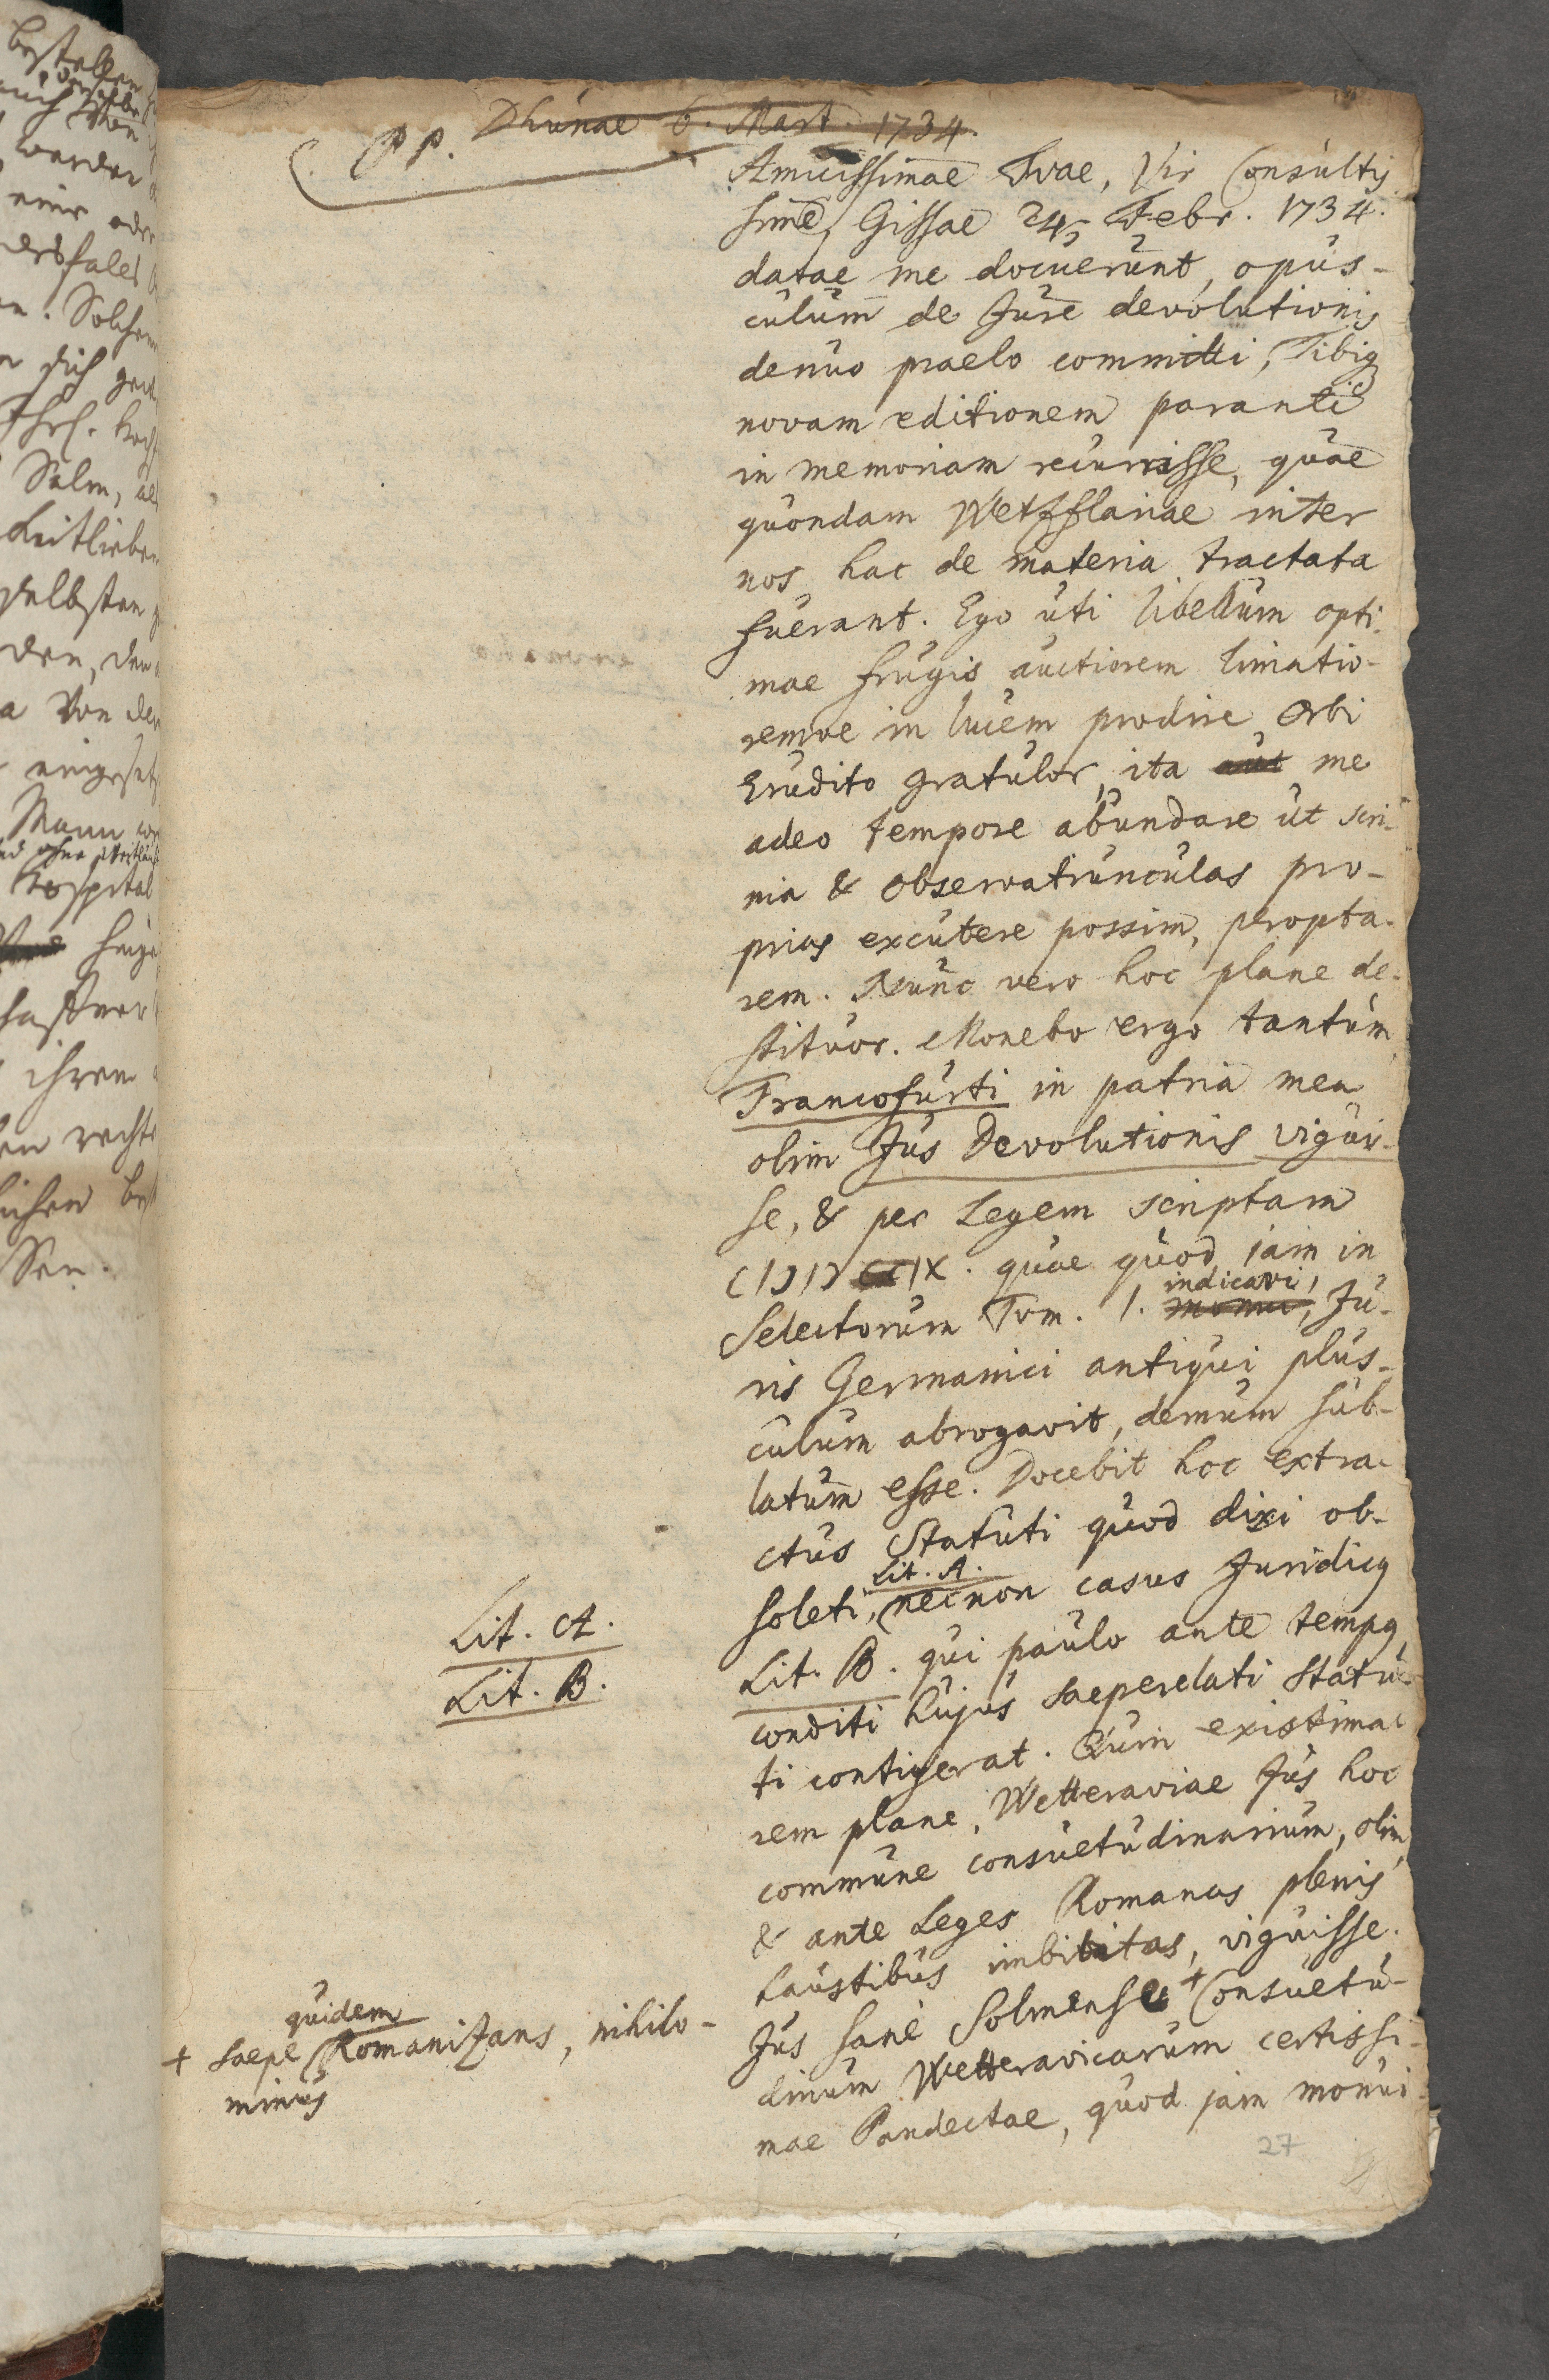 PP. Dhunae 6. Mart. 1734.
Amicissimae Tvae, Vir Consultis
sime, Gissae 24 Febr. 1734.
datae me docuerunt, opus-
culum de Jure devolutionis
denuo praelo committi, Tibiq
novam editionem paranti
in memoriam recurrisse, quae
quondam Wetzflariae inter
nos hac de materia tractata
fuerant. Ego uti libellum opti
mae frugis auctiorem limatio-
remve in lucem prodire Orbi
Erudito gratulor, ita aut me
adeo tempore abundare ut scri-
nia & observatiunculas pro-
prias excutere possim, peropta-
rem. Nunc vero hoc plane de-
stituor. Monebo ergo tantum
Francofurti in patria mea
olim Jus Devolutionis vigui-
se, & per Legem scriptam
CIↃIↃ IX. quae quod jam in
indicavi,
Selectorum Tom. I. monui, Ju-
ris Germanici antiqui plus-
culum abrogavit, demum sub-
latum esse. Docebit hoc extra-
ctus Statuti quod dixi ob-
Lit. A.
soleti, necnon casus Juridicq
Lit. A.
Lit. B. qui paulo ante tempq
Lit. B.
conditi hujus saeperelati Statu-
ti contigerat. Quin existima-
rem plane, Wetteraviae Jus hoc
commune consuetudinarium, olim
& ante Leges Romanas plenis
haustibus imbibitas, viguisse.
Jus sane Solmense + Consuetu-
quidem
+ saepe Romanizans, nihilo-
minus
dinum Wetteravicarum certissi-
mae Pandectae, quod jam monui
27
bestellen
auch
werden
einer oder
. Solchem
sich
Salm, als
selbsten
den, den
a Von der
eingesetz
Mann
Hospital
ihren
en rechte
lichen